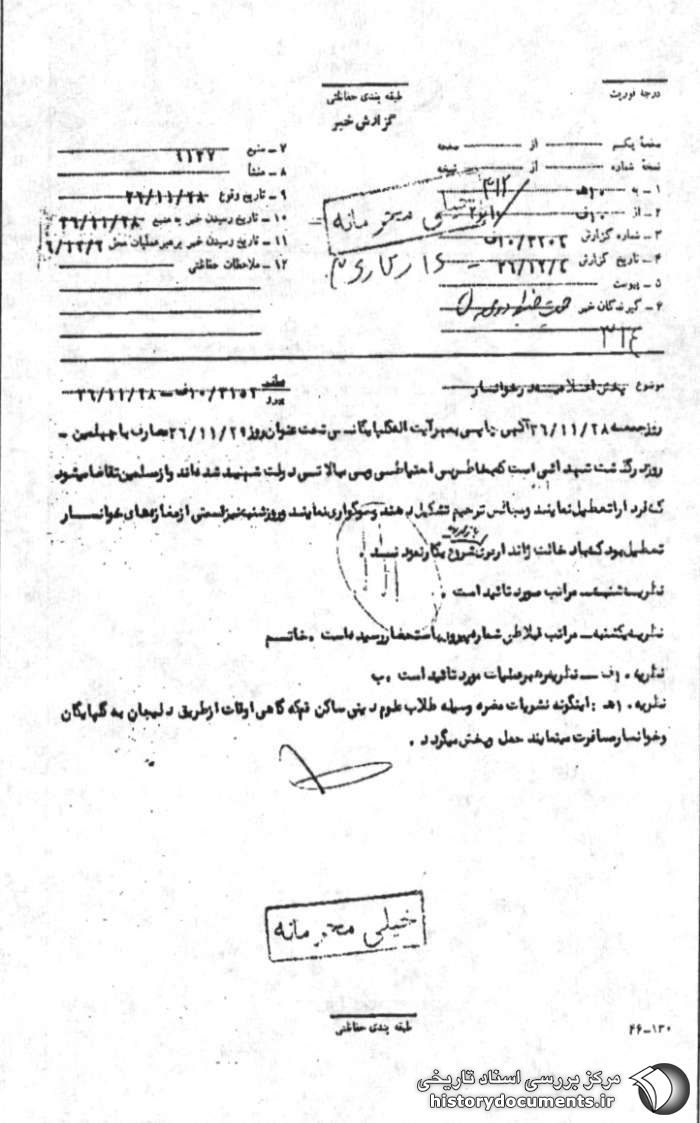 درجه فوریت
طبقه بندی حفاظتی
گزارش خبر
صفحهٔ یکم از صفحه
نسخهٔ شماره از نسخه
۱ـ به ۱۰هـ
۲ـ از ۱۰ف
۳ـ شماره گزارش
۴ـ تاریخ گزارش
۵ـ پیوست
۶ـ گیرندگان خبر
۳۱۴
۷ـ منبع
۸ـ منشأ
۹ـ تاریخ وقوع ۳۶/۱۱/۲۸
۱۰ـ تاریخ رسیدن خبر به منبع ۳۶/۱۱/۲۸
۱۱ـ تاریخ رسیدن خبر برهبر عملیات
۱۲ـ ملاحظات حفاظتی
خیلی محرمانه
موضوع پخش اعلامیه در خوانسار
پیرو ۱۰ف ـ ۳۶/۱۱/۲۸
روز جمعه ۳۶/۱۱/۲۸ آگهی چاپی بمهر آیت اله گلپایگانی تحت عنوان روز ۳۶/۱۱/۲۹ مصادف با چهلمین ـ
روز درگذشت شهدائی است که بخاطر بی احتیاطی و بی مبالاتی دولت شهید شده اند و از مسلمین تقاضا میشود
که فردا را تعطیل نمایند و مجالس ترحیم تشکیل دهند و سوگواری نمایند و روز شنبه نیز قسمتی از مغازه های خوانسار
تعطیل بود که با دخالت ژاندارمری شروع بکار نمودند .
نظریه شنبه ـ مراتب مورد تائید است .
نظریه یکشنبه ـ مراتب قبلا طی شماره پیرو باستحضار رسیده است . خاتم
نظریه ۱۰ف ـ نظریه رهبر عملیات مورد تائید است . ب
نظریه ۱۰هـ : اینگونه نشریات مضره وسیله طلاب علوم دینی ساکن قم که گاهی اوقات از طریق دلیجان به گلپایگان
و خوانسار مسافرت مینمایند حمل و پخش میگردد .
خیلی محرمانه
طبقه بندی حفاظتی
۴۶ـ۱۳۰
مرکز بررسی اسناد تاریخی
historydocuments.ir